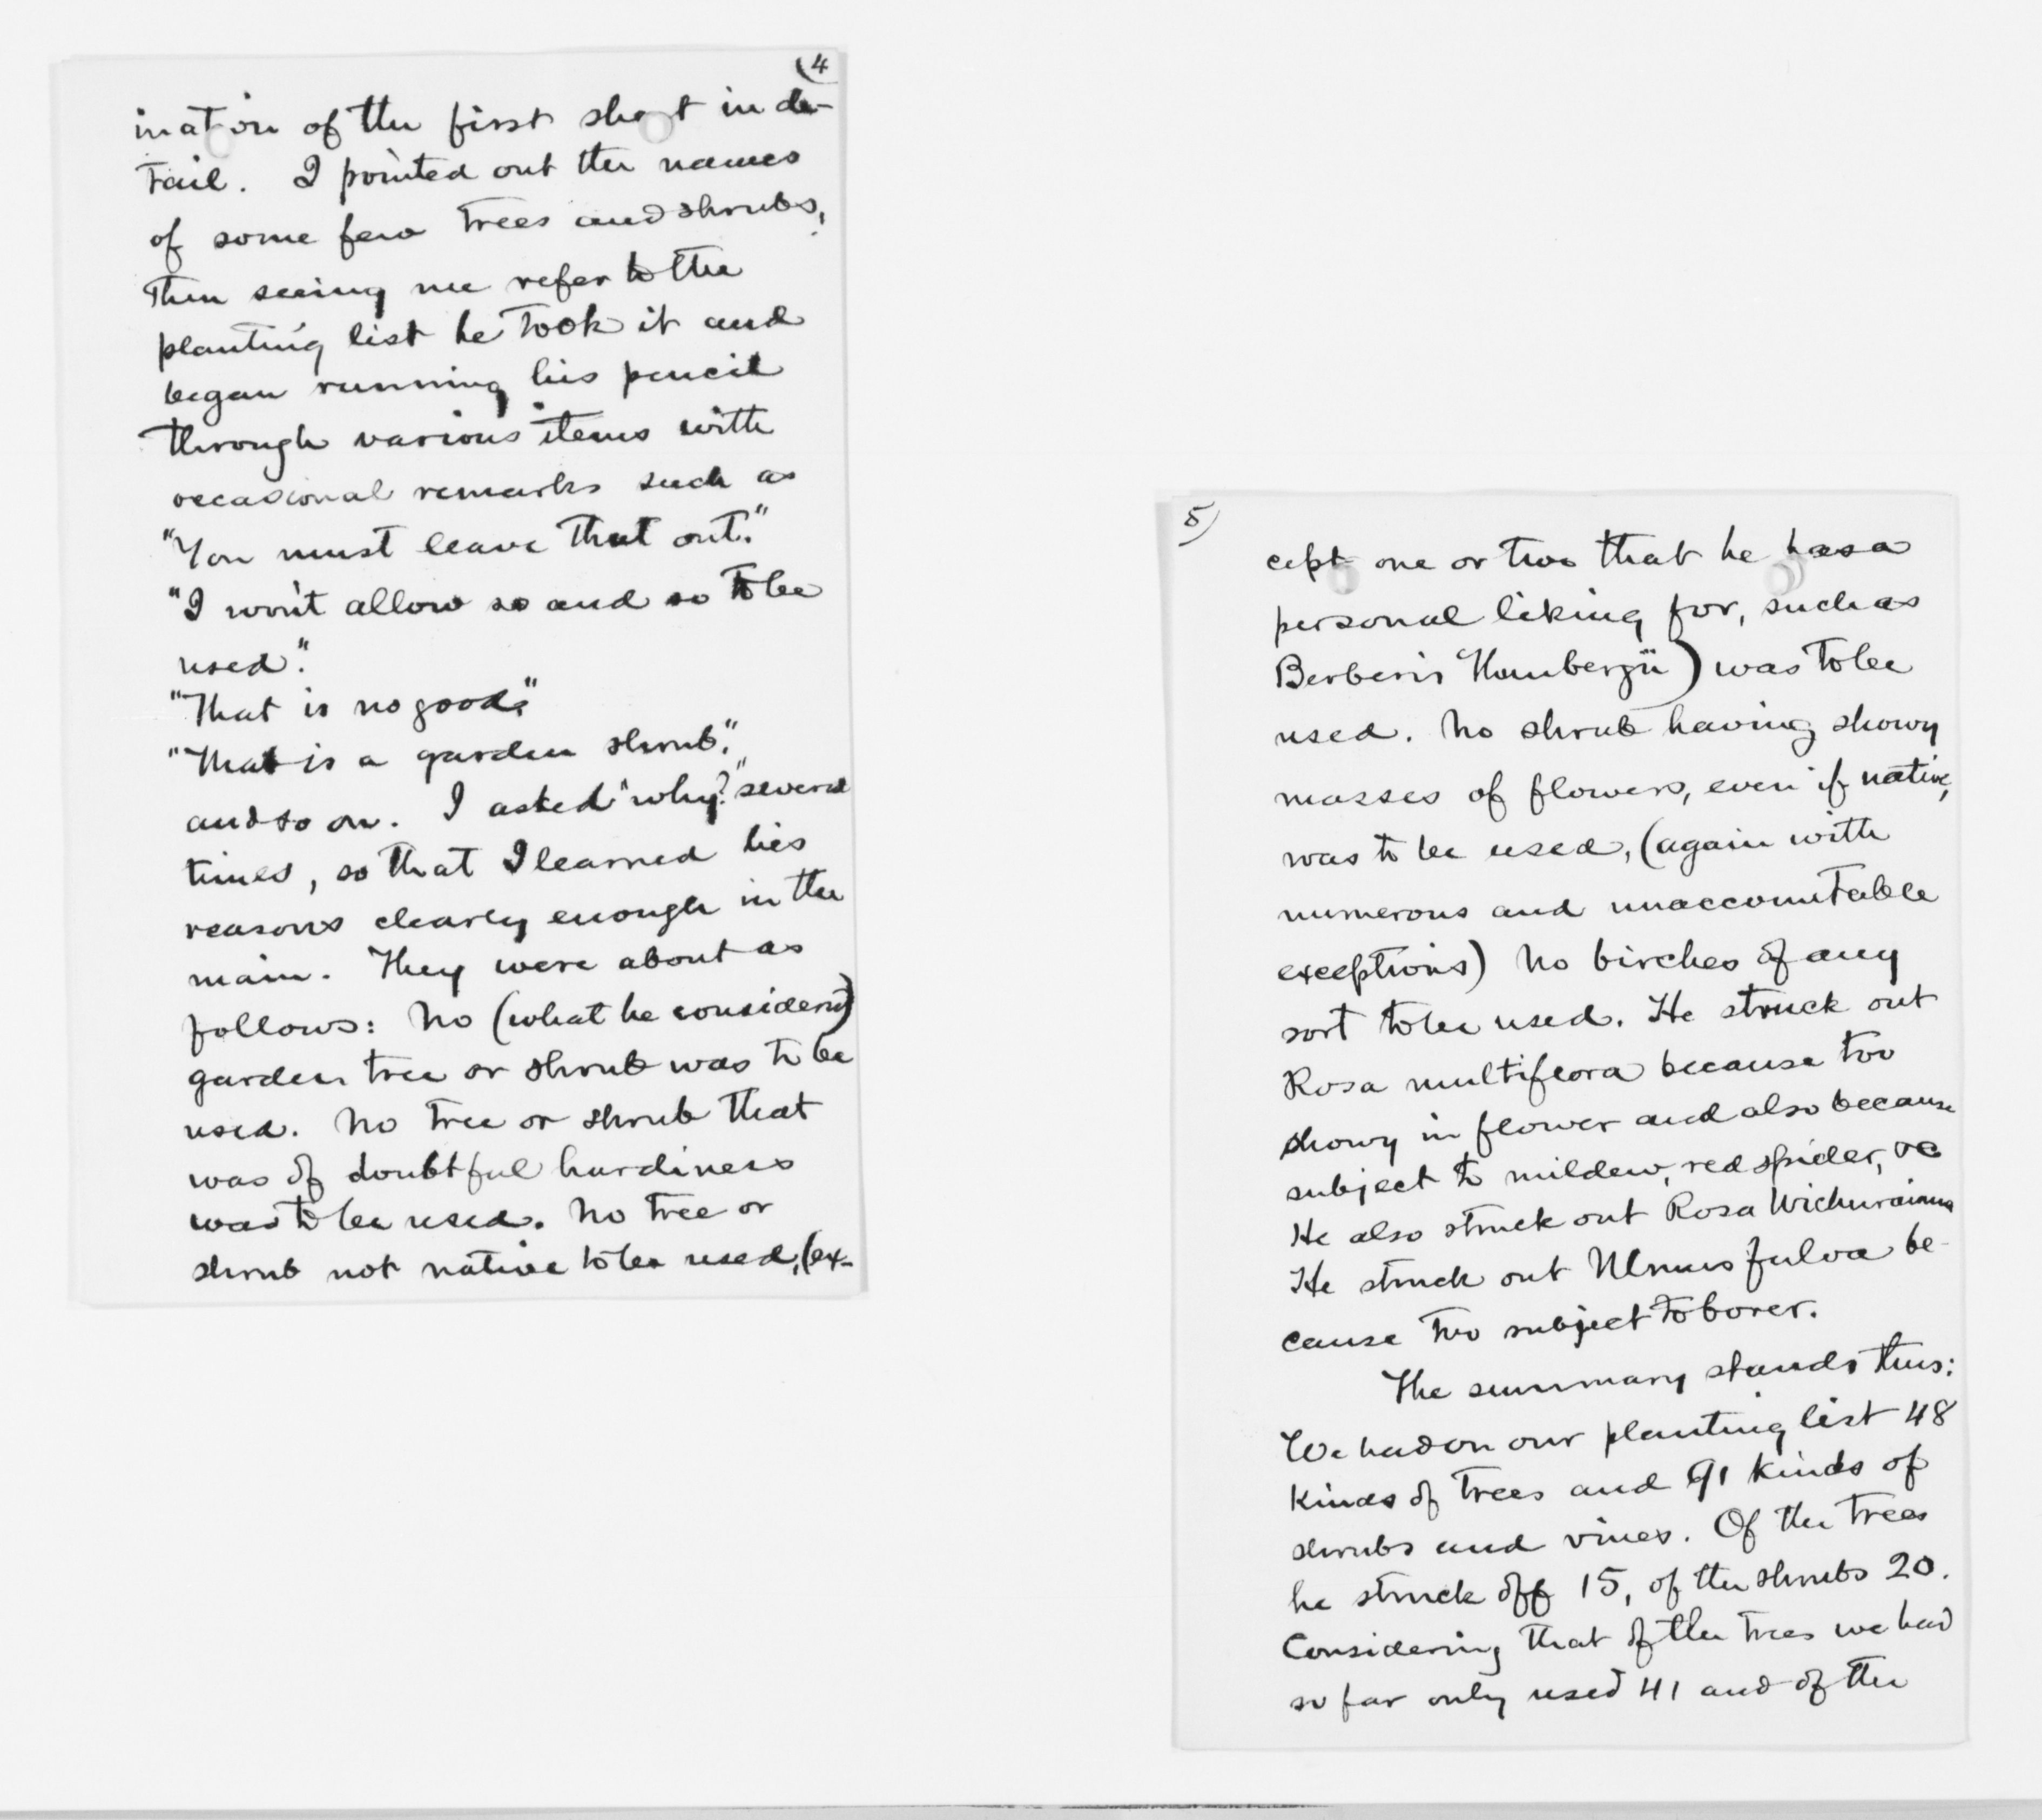 (4
ination of the first sheet in de-
tail. I pointed out the names
of some few trees and shrubs,
then seeing me refer to the
planting list he took it and
began running his pencil
through various items with
occasional remarks such as
"You must leave that out."
"I won't allow so and so to be
used".
"That is no good."
"That is a garden shrub".
and so on. I asked "why?" several
times, so that I learned his
reasons clearly enough in the
main. They were about as
follows: No (what he considered)
garden tree or shrub was to be
used. No tree or shrub that
was of doubtful hardiness
was to be used. No tree or
shrub not native to be used, (ex-
5)
cept one or two that he has a
personal liking for, such as
Berberis Thunbergii) was to be
used. No shrub having showy
masses of flowers, even if native,
was to be used, (again with
numerous and unaccountable
exceptions) No birches of any
sort to be used. He struck out
Rosa multiflora because too
showy in flower and also because
subject to mildew, red spider, &c
He also struck out Rosa Wichuraiana
He struck out Ulmus fulva be-
cause too subject to borer.
The summary stands thus:
We had on our planting list 48
kinds of trees and 91 kinds of
shrubs and vines. Of the trees
he struck off 15, of the shrubs 20.
Considering that of the trees we had
so far only used 41 and of the